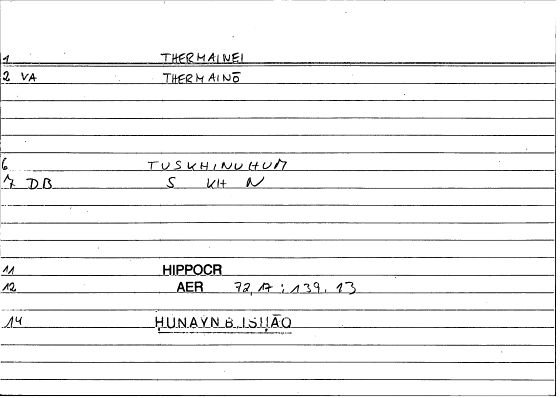 1 THERMAINEI
2 VA THERMAINŌ
6 TUSKHINUHUM
7 DB S KH N
11 HIPPOCR
12 AER 72,17 ; 139,13
14 ḤUNAYN B. ISḤĀQ